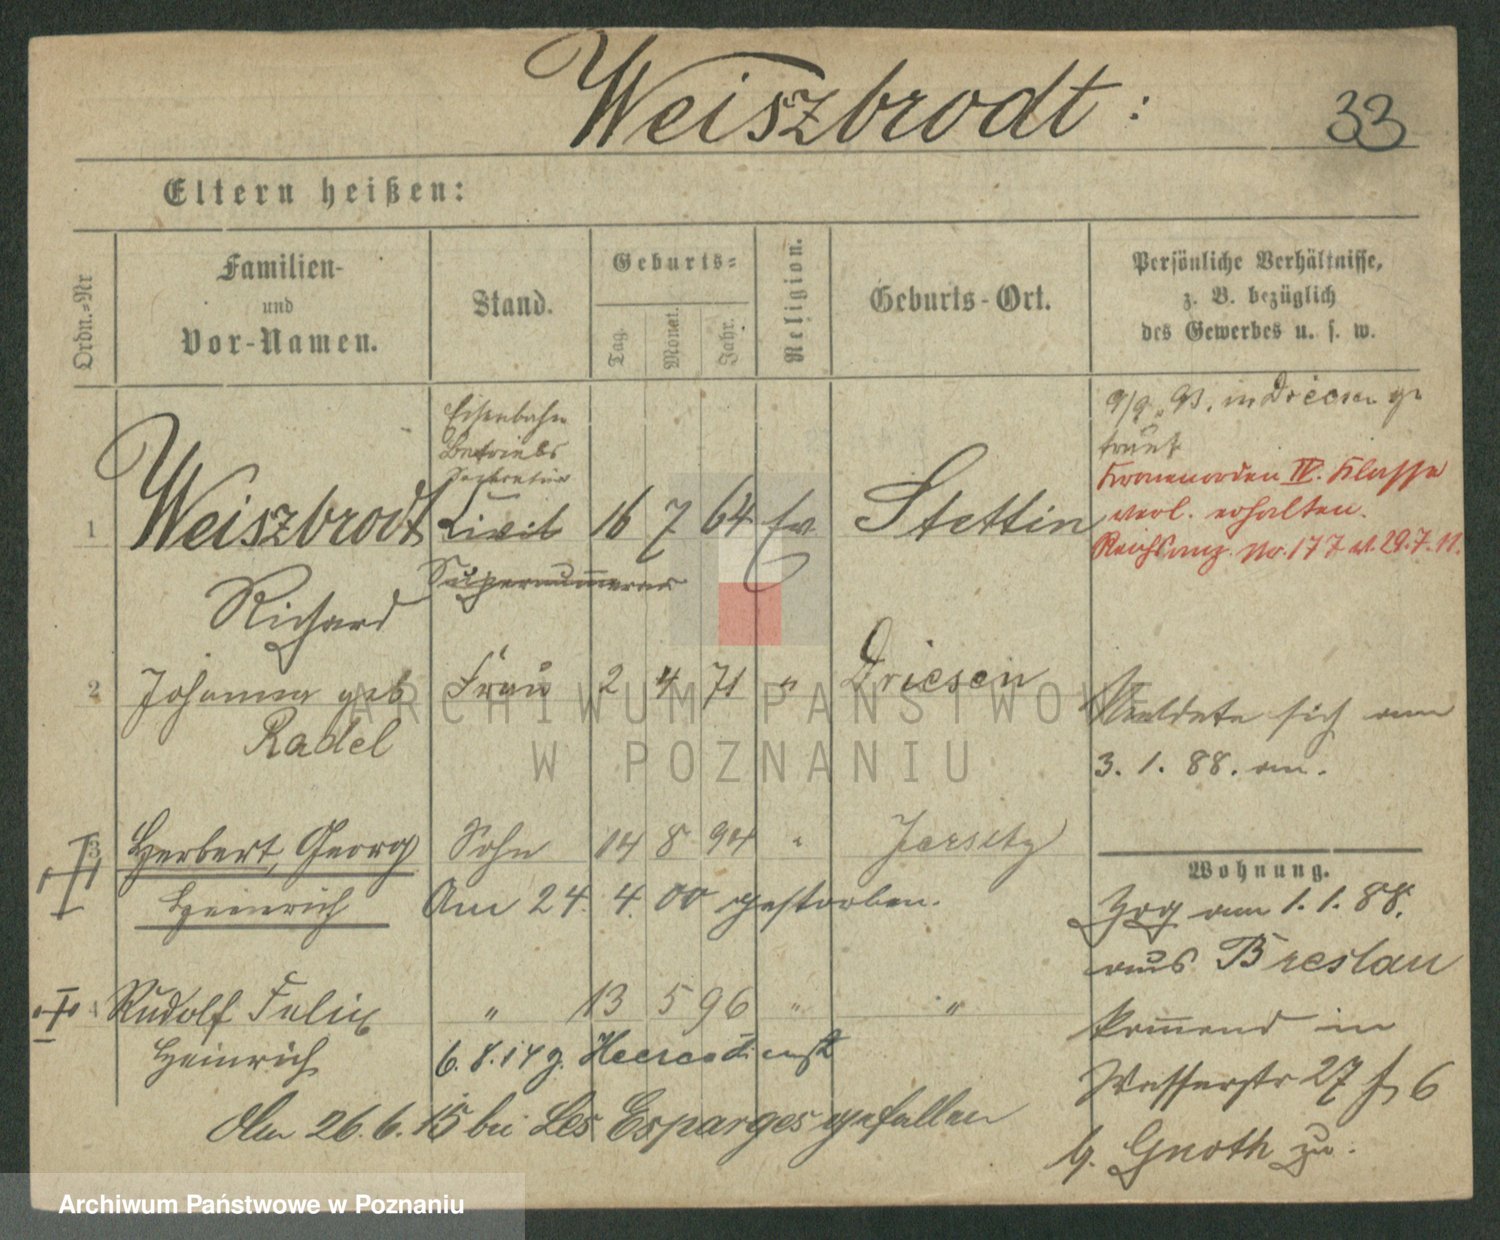 Weiszbrodt:
33
Eltern heißen:
Ordn.-Nr
Familien-
und
Vor-Namen.
Stand.
Geburts-
Tag.
Monat.
Jahr.
Religion.
Geburts-Ort.
Persönliche Verhältnisse,
z. B. bezüglich
des Gewerbes u. s. w.
9/9. 93. in Driesen ge
traut
Kronenorden IV. Klasse
verl. erhalten.
Reichsanz. No. 177 v. 29.7.11.
Eisenbahn
Betriebs
Sekretär
1 Weiszbrodt Civil 16 7 64 ev. Stettin
Supernumerar
Richard
2 Johanna geb Frau 2 4 71 " Driesen
Radel
Meldete sich am
3. 1. 88. an.
3 Herbert, Georg Sohn 14 8 94 " Jersitz
Heinrich Am 24. 4. 00 gestorben.
4 Rudolf Felix " 13 5 96 " "
Heinrich 6. 8. 14 z. Heeresdienst
Am 26. 6. 15 bei Les Eparges gefallen
Wohnung.
Zog am 1. 1. 88.
aus Breslau
kommend in
Wasserstr 27 6
b. Gnoth zu.
ARCHIWUM PAŃSTWOWE
W POZNANIU
Archiwum Państwowe w Poznaniu